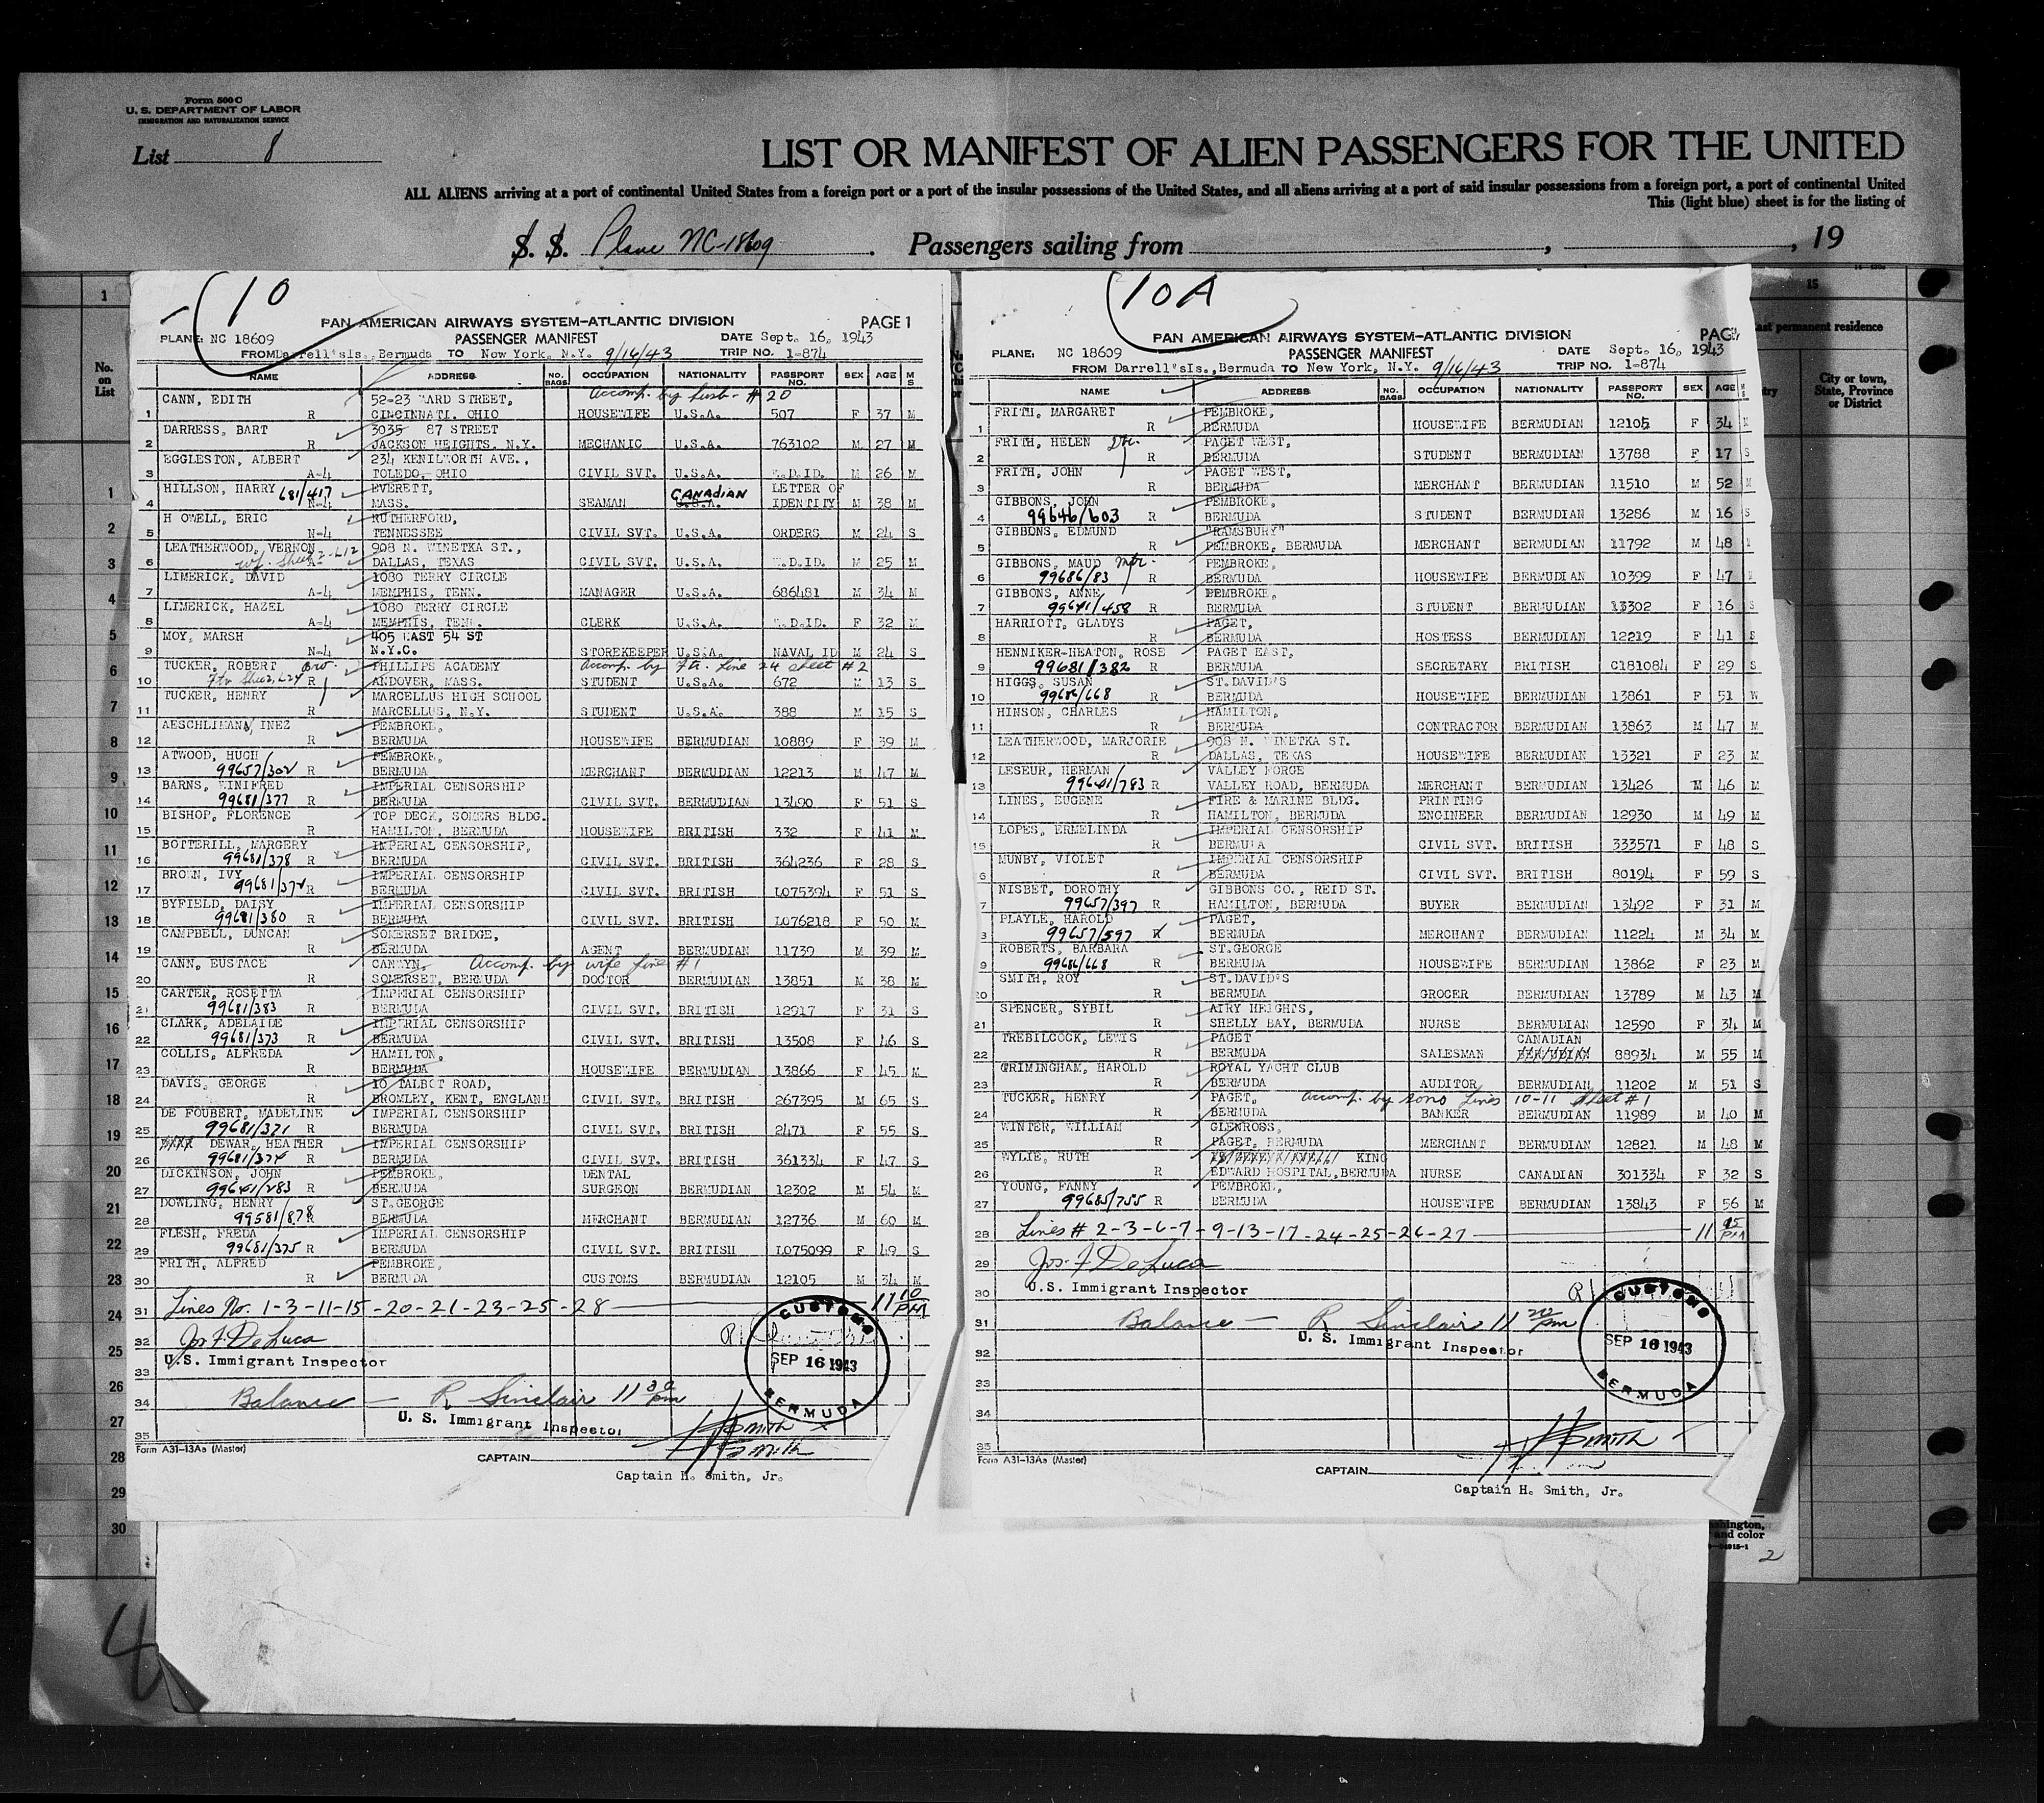 Form 500 C
U. S. DEPARTMENT OF LABOR
IMMIGRATION AND NATURALIZATION SERVICE
List 8
LIST OR MANIFEST OF ALIEN PASSENGERS FOR THE UNITED
ALL ALIENS arriving at a port of continental United States from a foreign port or a port of the insular possessions of the United States, and all aliens arriving at a port of said insular possessions from a foreign port, a port of continental United
This (light blue) sheet is for the listing of
S. S. Plane NC-18609. Passengers sailing from , , 19
10
PAN AMERICAN AIRWAYS SYSTEM-ATLANTIC DIVISION PAGE 1
PLANE: NC 18609 PASSENGER MANIFEST DATE Sept. 16, 1943
FROM Darrell'sIs., Bermuda TO New York, N.Y. 9/16/43 TRIP NO. 1-874
NAME ADDRESS NO. BAGS OCCUPATION NATIONALITY PASSPORT NO. SEX AGE M S
CANN, EDITH 52-23 WARD STREET, Accomp. by husb- # 20
1 R CINCINNATI, OHIO HOUSEWIFE U.S.A. 507 F 37 M
DARRESS, BART 3035 87 STREET
2 R JACKSON HEIGHTS, N.Y. MECHANIC U.S.A. 763102 M 27 M
EGGLESTON, ALBERT 234 KENILWORTH AVE.,
3 A-4 TOLEDO, OHIO CIVIL SVT. U.S.A. W.D.ID. M 26 M
HILLSON, HARRY 681/417 EVERETT, CANADIAN LETTER OF
4 N-4 MASS. SEAMAN U.S.A. IDENTITY M 38 M
H OWELL, ERIC RUTHERFORD,
5 N-4 TENNESSEE CIVIL SVT. U.S.A. ORDERS M 24 S
LEATHERWOOD, VERNON 908 N. WINETKA ST.,
6 wf. Sheet 2-L12 DALLAS, TEXAS CIVIL SVT. U.S.A. W.D.ID. M 25 M
LIMERICK, DAVID 1080 TERRY CIRCLE
7 A-4 MEMPHIS, TENN. MANAGER U.S.A. 686481 M 34 M
LIMERICK, HAZEL 1080 TERRY CIRCLE
8 A-4 MEMPHIS, TENN. CLERK U.S.A. W.D.ID. F 32 M
MOY, MARSH 405 EAST 54 ST
9 N-4 N.Y.C. STOREKEEPER U.S.A. NAVAL ID M 24 S
TUCKER, ROBERT bro. PHILLIPS ACADEMY Accomp. by Ftr. Line 24 sheet #2
10 Ftr Sheet 2, L24 R ANDOVER, MASS. STUDENT U.S.A. 672 M 13 S
TUCKER, HENRY MARCELLUS HIGH SCHOOL
11 R MARCELLUS, N.Y. STUDENT U.S.A. 388 M 15 S
AESCHLIMANN, INEZ PEMBROKE,
12 R BERMUDA HOUSEWIFE BERMUDIAN 10889 F 39 M
ATWOOD, HUGH PEMBROKE,
13 99657/302 R BERMUDA MERCHANT BERMUDIAN 12213 M 47 M
BARNS, WINIFRED IMPERIAL CENSORSHIP
14 99681/377 R BERMUDA CIVIL SVT. BERMUDIAN 13490 F 51 S
BISHOP, FLORENCE TOP DECK, SOMERS BLDG.
15 R HAMILTON, BERMUDA HOUSEWIFE BRITISH 332 F 41 M
BOTTERILL, MARGERY IMPERIAL CENSORSHIP,
16 99681/378 R BERMUDA CIVIL SVT. BRITISH 364236 F 28 S
BROWN, IVY IMPERIAL CENSORSHIP
17 99681/372 R BERMUDA CIVIL SVT. BRITISH L075394 F 51 S
BYFIELD, DAISY IMPERIAL CENSORSHIP
18 99681/380 R BERMUDA CIVIL SVT. BRITISH L076218 F 50 M
CAMPBELL, DUNCAN SOMERSET BRIDGE,
19 R BERMUDA AGENT BERMUDIAN 11739 M 39 M
CANN, EUSTACE CANWYN, Accomp. by wife line #1
20 R SOMERSET, BERMUDA DOCTOR BERMUDIAN 13851 M 38 M
CARTER, ROSETTA IMPERIAL CENSORSHIP
21 99681/383 R BERMUDA CIVIL SVT. BRITISH 12917 F 31 S
CLARK, ADELAIDE IMPERIAL CENSORSHIP
22 99681/373 R BERMUDA CIVIL SVT. BRITISH 13508 F 46 S
COLLIS, ALFREDA HAMILTON,
23 R BERMUDA HOUSEWIFE BERMUDIAN 13866 F 45 M
DAVIS, GEORGE 10 TALBOT ROAD,
24 R BROMLEY, KENT, ENGLAND CIVIL SVT. BRITISH 267395 M 65 S
DE FOUBERT, MADELINE IMPERIAL CENSORSHIP
25 99681/371 R BERMUDA CIVIL SVT. BRITISH 2471 F 55 S
DEWAR, HEATHER IMPERIAL CENSORSHIP
26 99681/374 R BERMUDA CIVIL SVT. BRITISH 361334 F 47 S
DICKINSON, JOHN PEMBROKE, DENTAL
27 99641/283 R BERMUDA SURGEON BERMUDIAN 12302 M 54 M
DOWLING, HENRY ST.GEORGE
28 99581/878 R BERMUDA MERCHANT BERMUDIAN 12736 M 60 M
FLESH, FREDA IMPERIAL CENSORSHIP
29 99681/375 R BERMUDA CIVIL SVT. BRITISH L075099 F 49 S
FRITH, ALFRED PEMBROKE,
30 R BERMUDA CUSTOMS BERMUDIAN 12105 M 34 M
31 Lines No. 1-3-11-15-20-21-23-25-28 11 10 PM
32 Jos. F. DeLuca
U.S. Immigrant Inspector
33
34 Balance — R Sinclair 11 30 pm
U. S. Immigrant Inspector
35
CUSTOMS
SEP 16 1943
BERMUDA
H Smith
Form A31-13Aa (Master)
CAPTAIN
Captain H. Smith, Jr.
10A
PAN AMERICAN AIRWAYS SYSTEM-ATLANTIC DIVISION PAGE
PLANE: NC 18609 PASSENGER MANIFEST DATE Sept. 16, 1943
FROM Darrell'sIs., Bermuda TO New York, N.Y. 9/16/43 TRIP NO. 1-874
NAME ADDRESS NO. BAGS OCCUPATION NATIONALITY PASSPORT NO. SEX AGE M S
FRITH, MARGARET PEMBROKE,
1 R BERMUDA HOUSEWIFE BERMUDIAN 12105 F 34 M
FRITH, HELEN Dtr. PAGET WEST,
2 R BERMUDA STUDENT BERMUDIAN 13788 F 17 S
FRITH, JOHN PAGET WEST,
3 R BERMUDA MERCHANT BERMUDIAN 11510 M 52 M
GIBBONS, JOHN PEMBROKE,
4 99646/603 R BERMUDA STUDENT BERMUDIAN 13286 M 16 S
GIBBONS, EDMUND "RAMSBURY"
5 R PEMBROKE, BERMUDA MERCHANT BERMUDIAN 11792 M 48
GIBBONS, MAUD mtr. PEMBROKE,
6 99686/83 R BERMUDA HOUSEWIFE BERMUDIAN 10399 F 47
GIBBONS, ANNE PEMBROKE,
7 99641/458 R BERMUDA STUDENT BERMUDIAN 13302 F 16 S
HARRIOTT, GLADYS PAGET,
8 R BERMUDA HOSTESS BERMUDIAN 12219 F 41 S
HENNIKER-HEATON, ROSE PAGET EAST,
9 99681/382 R BERMUDA SECRETARY BRITISH C181084 F 29 S
HIGGS, SUSAN ST.DAVID'S
10 99686/668 R BERMUDA HOUSEWIFE BERMUDIAN 13861 F 51 W
HINSON, CHARLES HAMILTON,
11 R BERMUDA CONTRACTOR BERMUDIAN 13863 M 47 M
LEATHERWOOD, MARJORIE 908 N. WINETKA ST.
12 R DALLAS, TEXAS HOUSEWIFE BERMUDIAN 13321 F 23 M
LESEUR, HERMAN VALLEY FORGE
13 99641/783 R VALLEY ROAD, BERMUDA MERCHANT BERMUDIAN 13426 M 46 M
LINES, EUGENE FIRE & MARINE BLDG. PRINTING
14 R HAMILTON, BERMUDA ENGINEER BERMUDIAN 12930 M 49 M
LOPES, ERMELINDA IMPERIAL CENSORSHIP
15 R BERMUDA CIVIL SVT. BRITISH 333571 F 48 S
MUNBY, VIOLET IMPERIAL CENSORSHIP
6 R BERMUDA CIVIL SVT. BRITISH 80194 F 59 S
NISBET, DOROTHY GIBBONS CO., REID ST.
7 99657/397 R HAMILTON, BERMUDA BUYER BERMUDIAN 13492 F 31 M
PLAYLE, HAROLD PAGET,
99657/597 R BERMUDA MERCHANT BERMUDIAN 11224 M 34 M
ROBERTS, BARBARA ST.GEORGE
9 99686/668 R BERMUDA HOUSEWIFE BERMUDIAN 13862 F 23 M
SMITH, ROY ST.DAVID'S
20 R BERMUDA GROCER BERMUDIAN 13789 M 43 M
SPENCER, SYBIL AIRY HEIGHTS,
21 R SHELLY BAY, BERMUDA NURSE BERMUDIAN 12590 F 34 M
TREBILCOCK, LEWIS PAGET CANADIAN
22 R BERMUDA SALESMAN BERMUDIAN 88934 M 55 M
TRIMINGHAM, HAROLD ROYAL YACHT CLUB
23 R BERMUDA AUDITOR BERMUDIAN 11202 M 51 S
TUCKER, HENRY PAGET, Accomp. by sons Lines 10-11 sheet #1
24 R BERMUDA BANKER BERMUDIAN 11989 M 40 M
WINTER, WILLIAM GLENROSS,
25 R PAGET, BERMUDA MERCHANT BERMUDIAN 12821 M 48 M
WYLIE, RUTH KING
26 R EDWARD HOSPITAL, BERMUDA NURSE CANADIAN 301334 F 32 S
YOUNG, FANNY PEMBROKE,
27 99685/755 R BERMUDA HOUSEWIFE BERMUDIAN 13843 F 56 M
28 Lines # 2-3-6-7-9-13-17-24-25-26-27 11 15 PM
29 Jos. F. DeLuca
30 U.S. Immigrant Inspector
31 Balance — R Sinclair 11 20 pm
32 U. S. Immigrant Inspector
33
34
35
CUSTOMS
SEP 16 1943
BERMUDA
H Smith
Form A31-13Aa (Master)
CAPTAIN
Captain H. Smith, Jr.
No. on List
1
1
2
3
4
5
6
7
8
9
10
11
12
13
14
15
16
17
18
19
20
21
22
23
24
25
26
27
28
29
30
15
ast permanent residence
try
City or town, State, Province or District
ashington,
and color
2
4